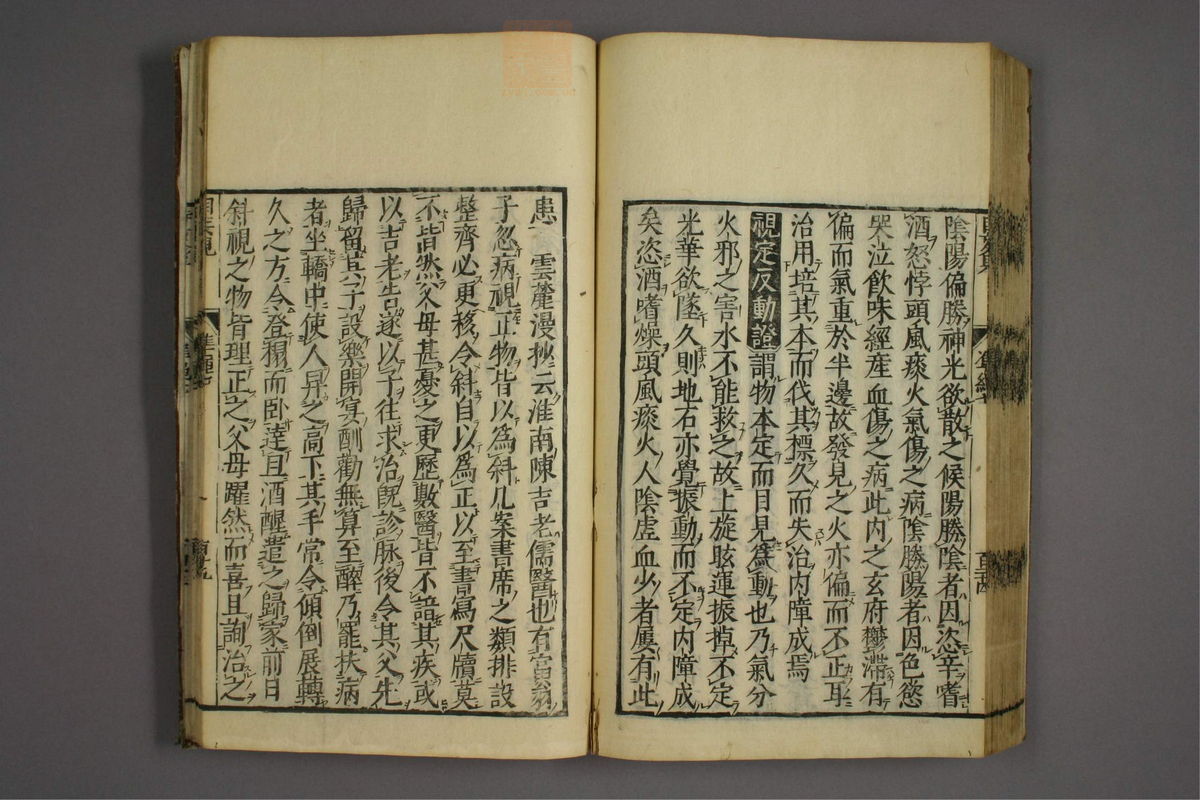 陰陽偏勝神光欲散之候陽勝陰者因恣辛嗜
酒怒悖頭風痰火氣傷之病陰勝陽者因色慾
哭泣飲味經産血傷之病此内之玄府鬱滯有
偏而氣重於半邊故發見之火亦偏而不正耳
治用培其本而伐其標久而失治内障成焉
視定反動證謂物本定而目見爲動也乃氣分
火邪之害水不能救之故上旋眩運振掉不定
光華欲墜久則地石亦覺振動而不定内障成
矣恣酒嗜燥頭風痰火人陰虚血少者屢有此
患 雲麓漫抄云淮南陳吉老儒醫也有富翁
子忽病視正物皆以爲斜几案書席之類排設
整齊必更移令斜自以爲正以至書寫尺牘莫
不皆然父母甚憂之更歷數醫皆不諳其疾或
以吉老告遂以子往求治既診脉後令其父先
歸留其子設樂開宴酣勸無算至醉乃罷扶病
者坐轎中使人舁之高下其手常令傾倒展轉
久之方令登榻而卧達旦酒醒遣之歸家前日
斜視之物皆理正之父母躍然而喜且詢治之